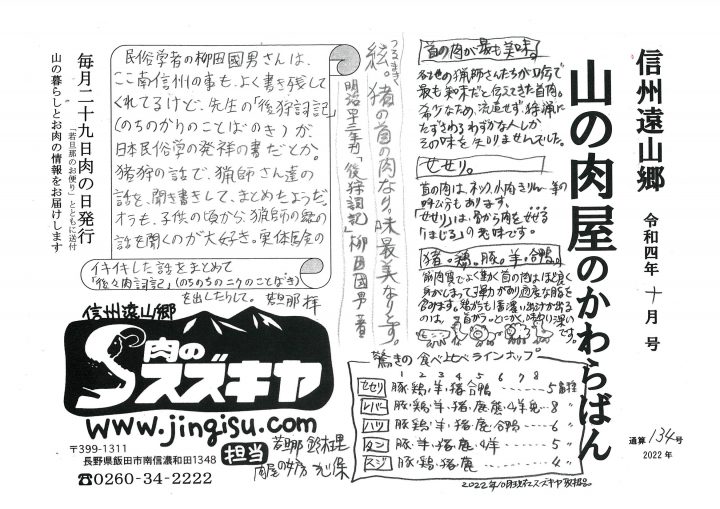 信州遠山郷
山の肉屋のかわらばん
令和四年 十月号
通算134号
2022年
首の肉が最も美味。
最も美味だと伝えてきた首肉。
希少なため、流通せず、狩猟に
たずさわるわずかな人しか
その味を知りませんでした。
せせり。
呼び方もあります。
「せせり」は、骨から肉をせせる
「ほじる」の意味です。
猪。鶏。豚。羊。合鴨。
驚きの食べ比べラインナップ。
1 2 3 4 5 6 7 8
セセリ 豚・鶏・羊・猪・合鴨 5種
レバー 豚・鶏・羊・猪・鹿・熊・山羊・兎 8〃
ハツ 豚・鶏・羊・猪・鹿・合鴨 6〃
タン 豚・羊・猪・鹿・山羊 5〃
スジ 豚・鶏・猪・鹿 4〃
2022年10月現在スズキヤ取扱品。
つるまき
絃。猪の首の肉なり。味最美なりとす。
明治四十二年刊「後狩詞記」柳田國男著
民俗学者の柳田國男さんは、
ここ南信州の事も、よく書き残して
くれてるけど、先生の「後狩詞記」
(のちのかりのことばのき)が、
日本民俗学の発祥の書だとか。
猪狩の話で、猟師さん達の
話を、聞き書きして、まとめたようだ。
オラも、子供の頃から猟師の
話を聞くのが大好き。実体験の
イキイキした話をまとめて
「後々肉詞記」(のちのちのニクのことばき)
を出したらして。若旦那 拝
毎月二十九日肉の日発行
「若旦那のお便り」とともに送付
山の暮らしとお肉の情報をお届けします
信州遠山郷
肉の
スズキヤ
www.jingisu.com
〒399-1311
長野県飯田市南信濃和田1348
☎0260-34-2222
担当
若旦那 鈴木理
肉屋の女房